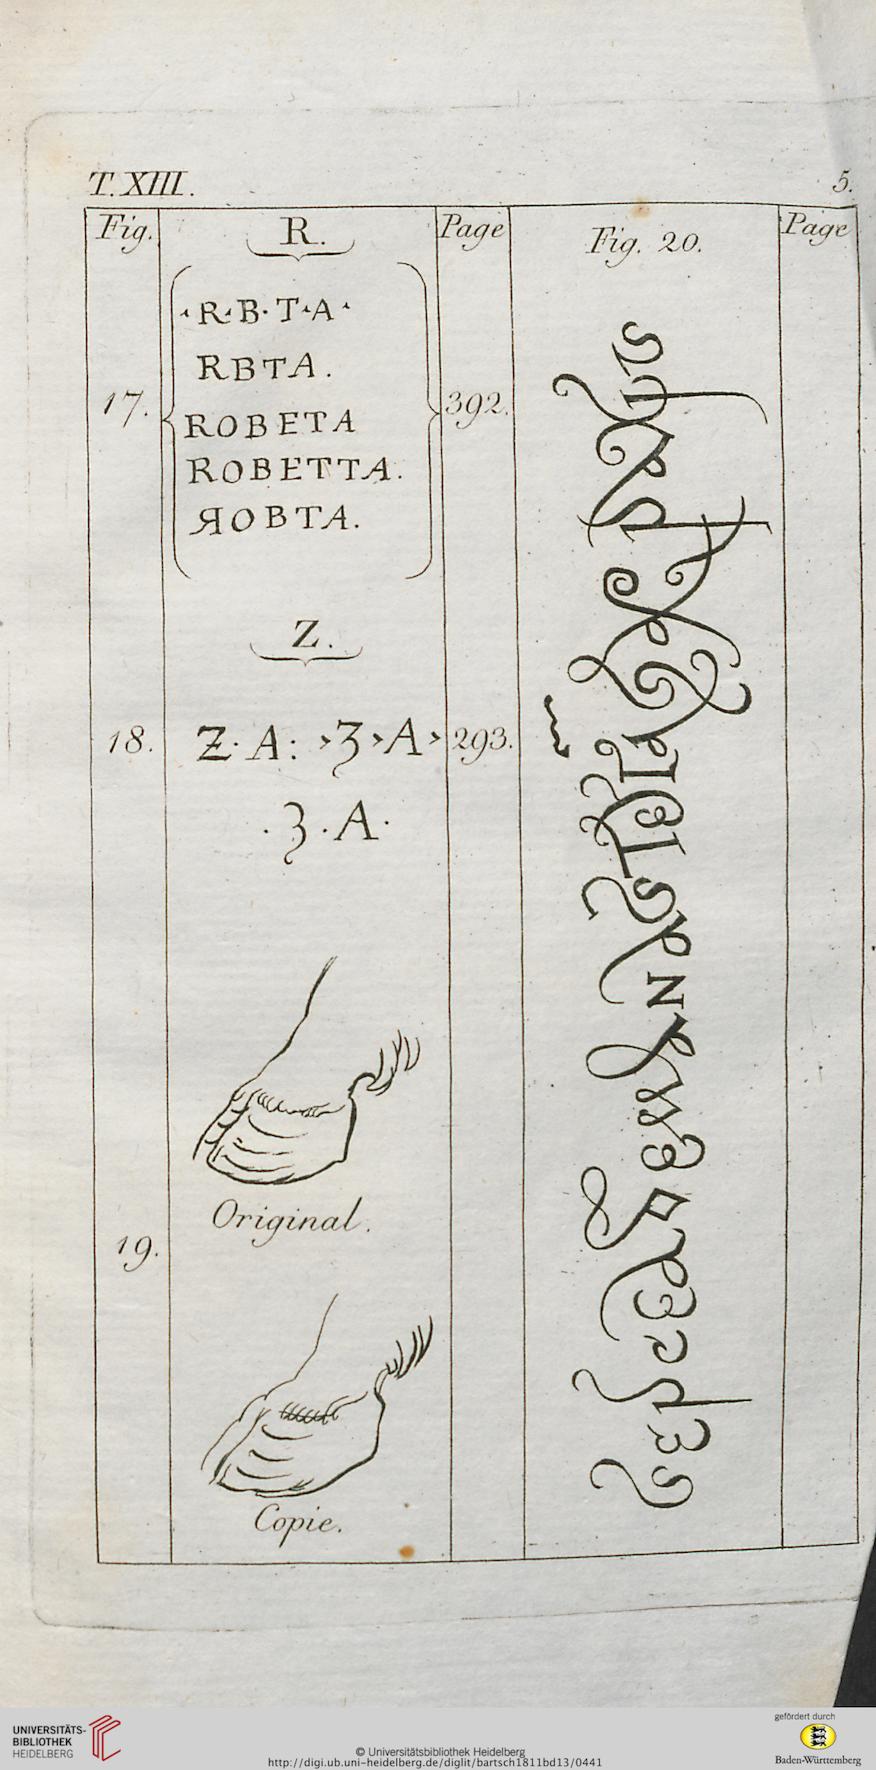 T. XIII.
5.
Fig.
R.
Page
Fig. 20.
Page
17.
·R·B·T·A·
RBTA.
ROBETA
ROBETTA.
ЯOBTA.
392.
Z.
18.
Z·A: ›Ʒ›A›
293.
·Ʒ·A·
19.
Original.
Copie.
UNIVERSITÄTS-
BIBLIOTHEK
HEIDELBERG
© Universitätsbibliothek Heidelberg
http://digi.ub.uni-heidelberg.de/diglit/bartsch1811bd13/0441
gefördert durch
Baden-Württemberg